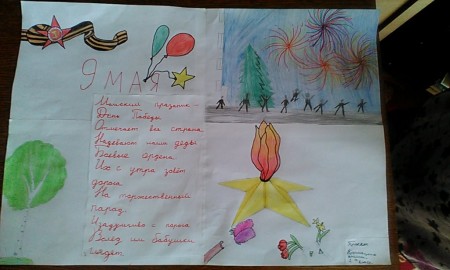 9 МАЯ
Майский праздник
День Победы
Отмечает вся страна.
Надевают наши деды
Боевые ордена.
Их с утра зовёт
дорога
На торжественный
парад.
И задумчиво с порога
Вслед им бабушки
глядят.